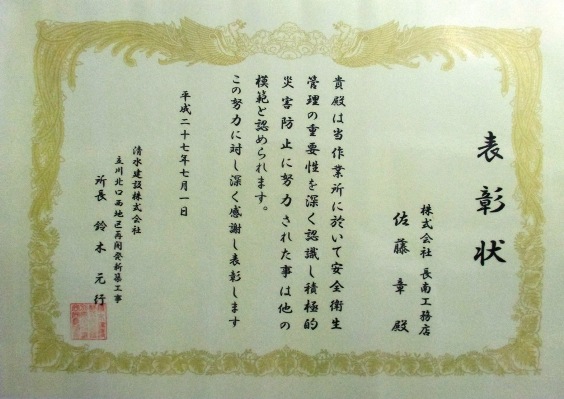 表彰状
株式会社 長南工務店
佐藤章殿
貴殿は当作業所に於いて安全衛生
管理の重要性を深く認識し積極的
災害防止に努力された事は他の
模範と認められます。
この努力に対し深く感謝し表彰します
平成二十七年七月一日
清水建設株式会社
立川北口西地区再開発新築工事
所長 鈴木元行